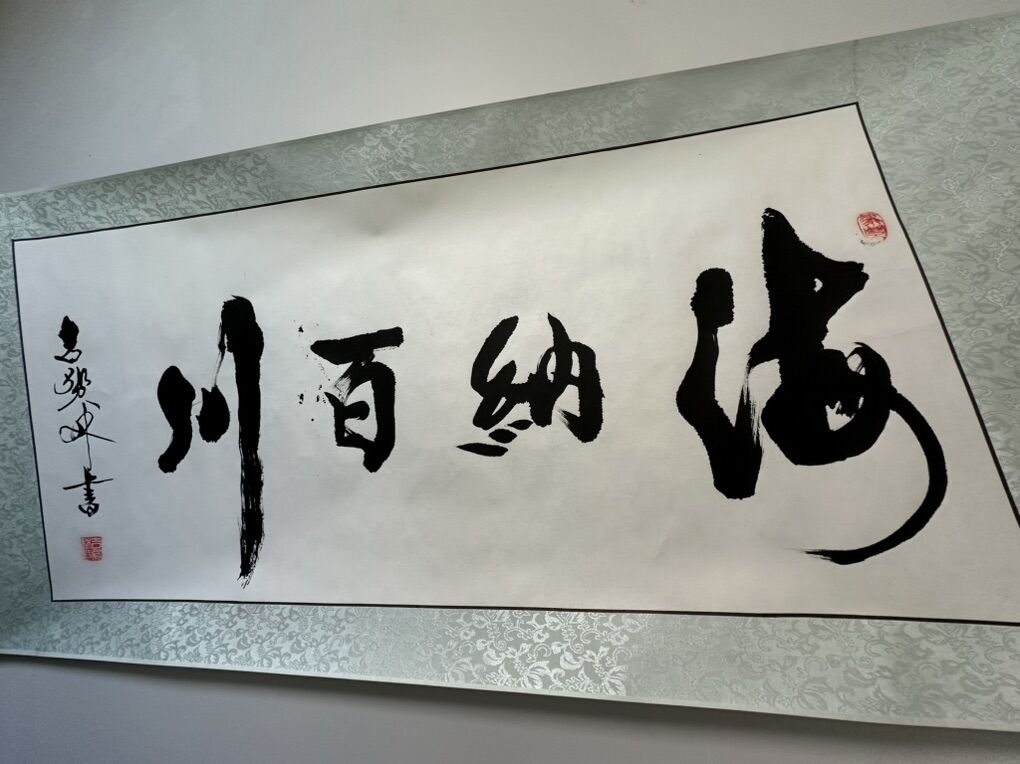 海纳百川
书